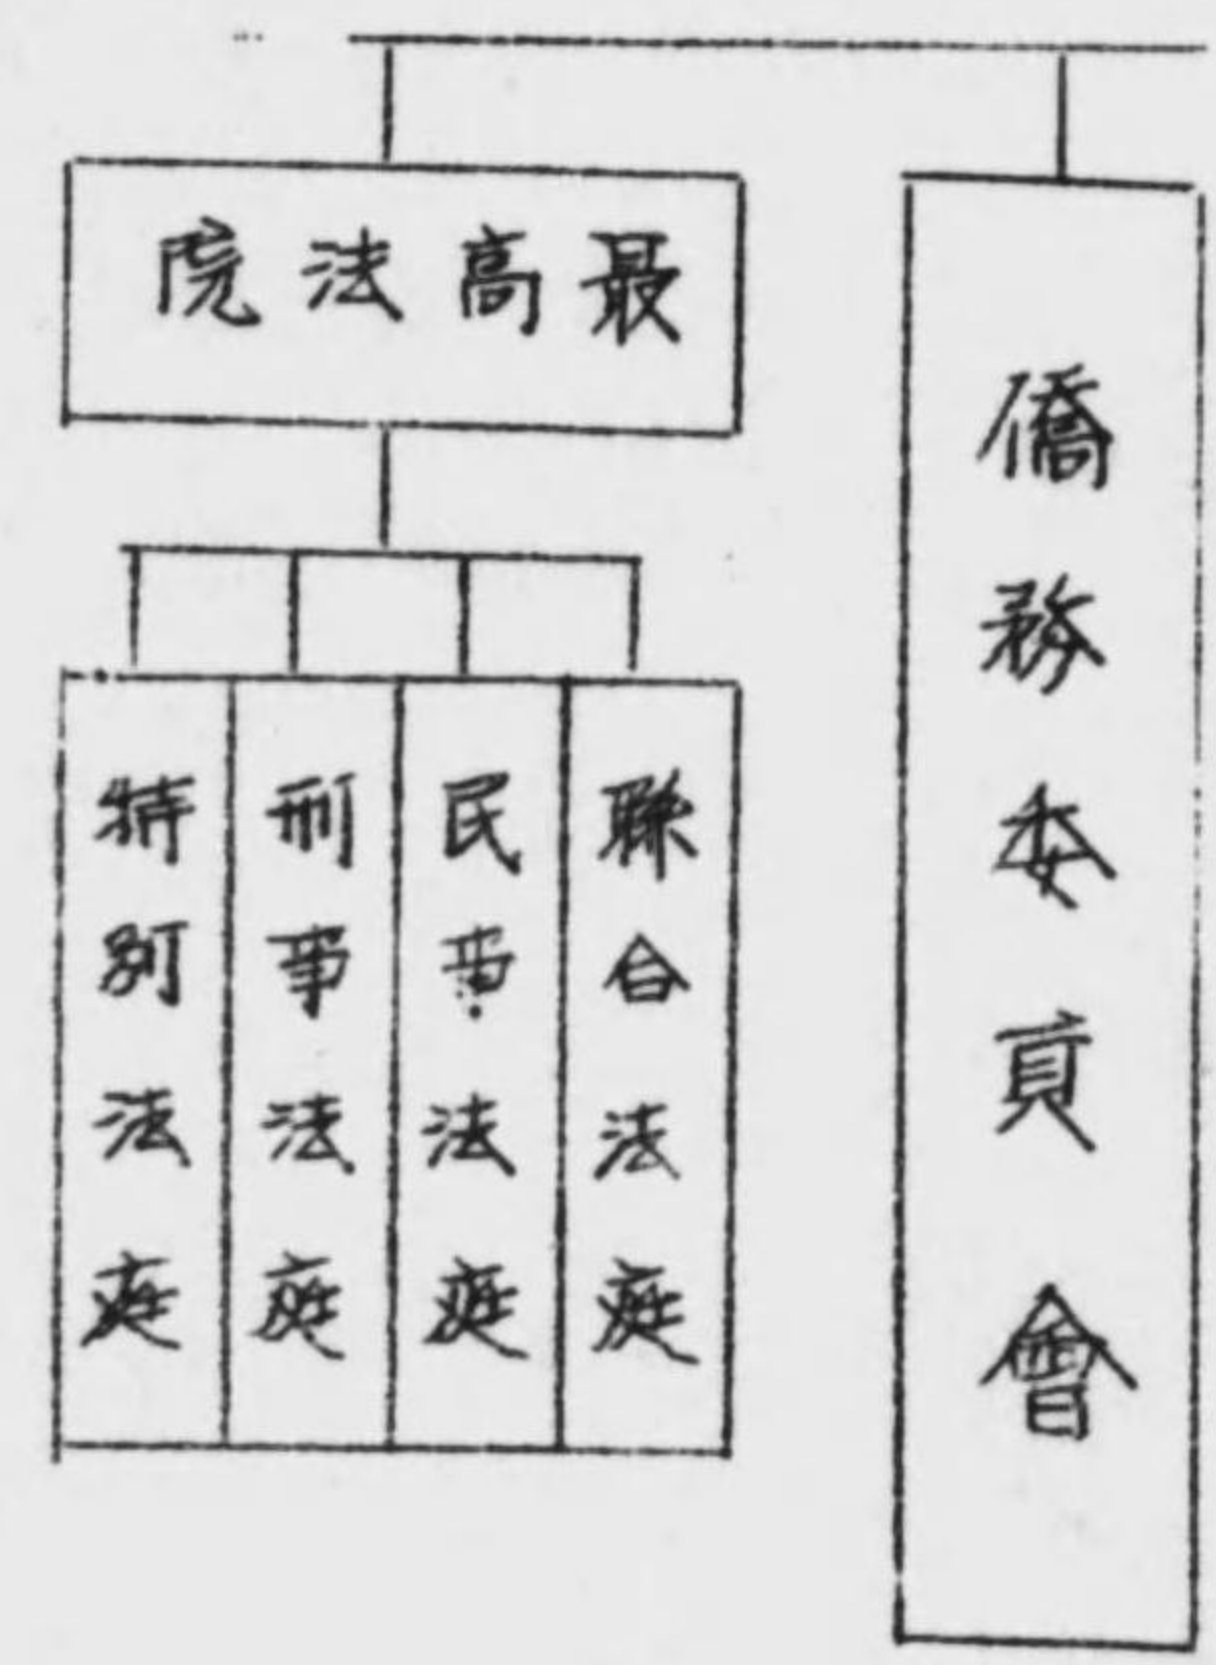 僑務委員會
最高法院
聯合法庭
民事法庭
刑事法庭
特別法庭